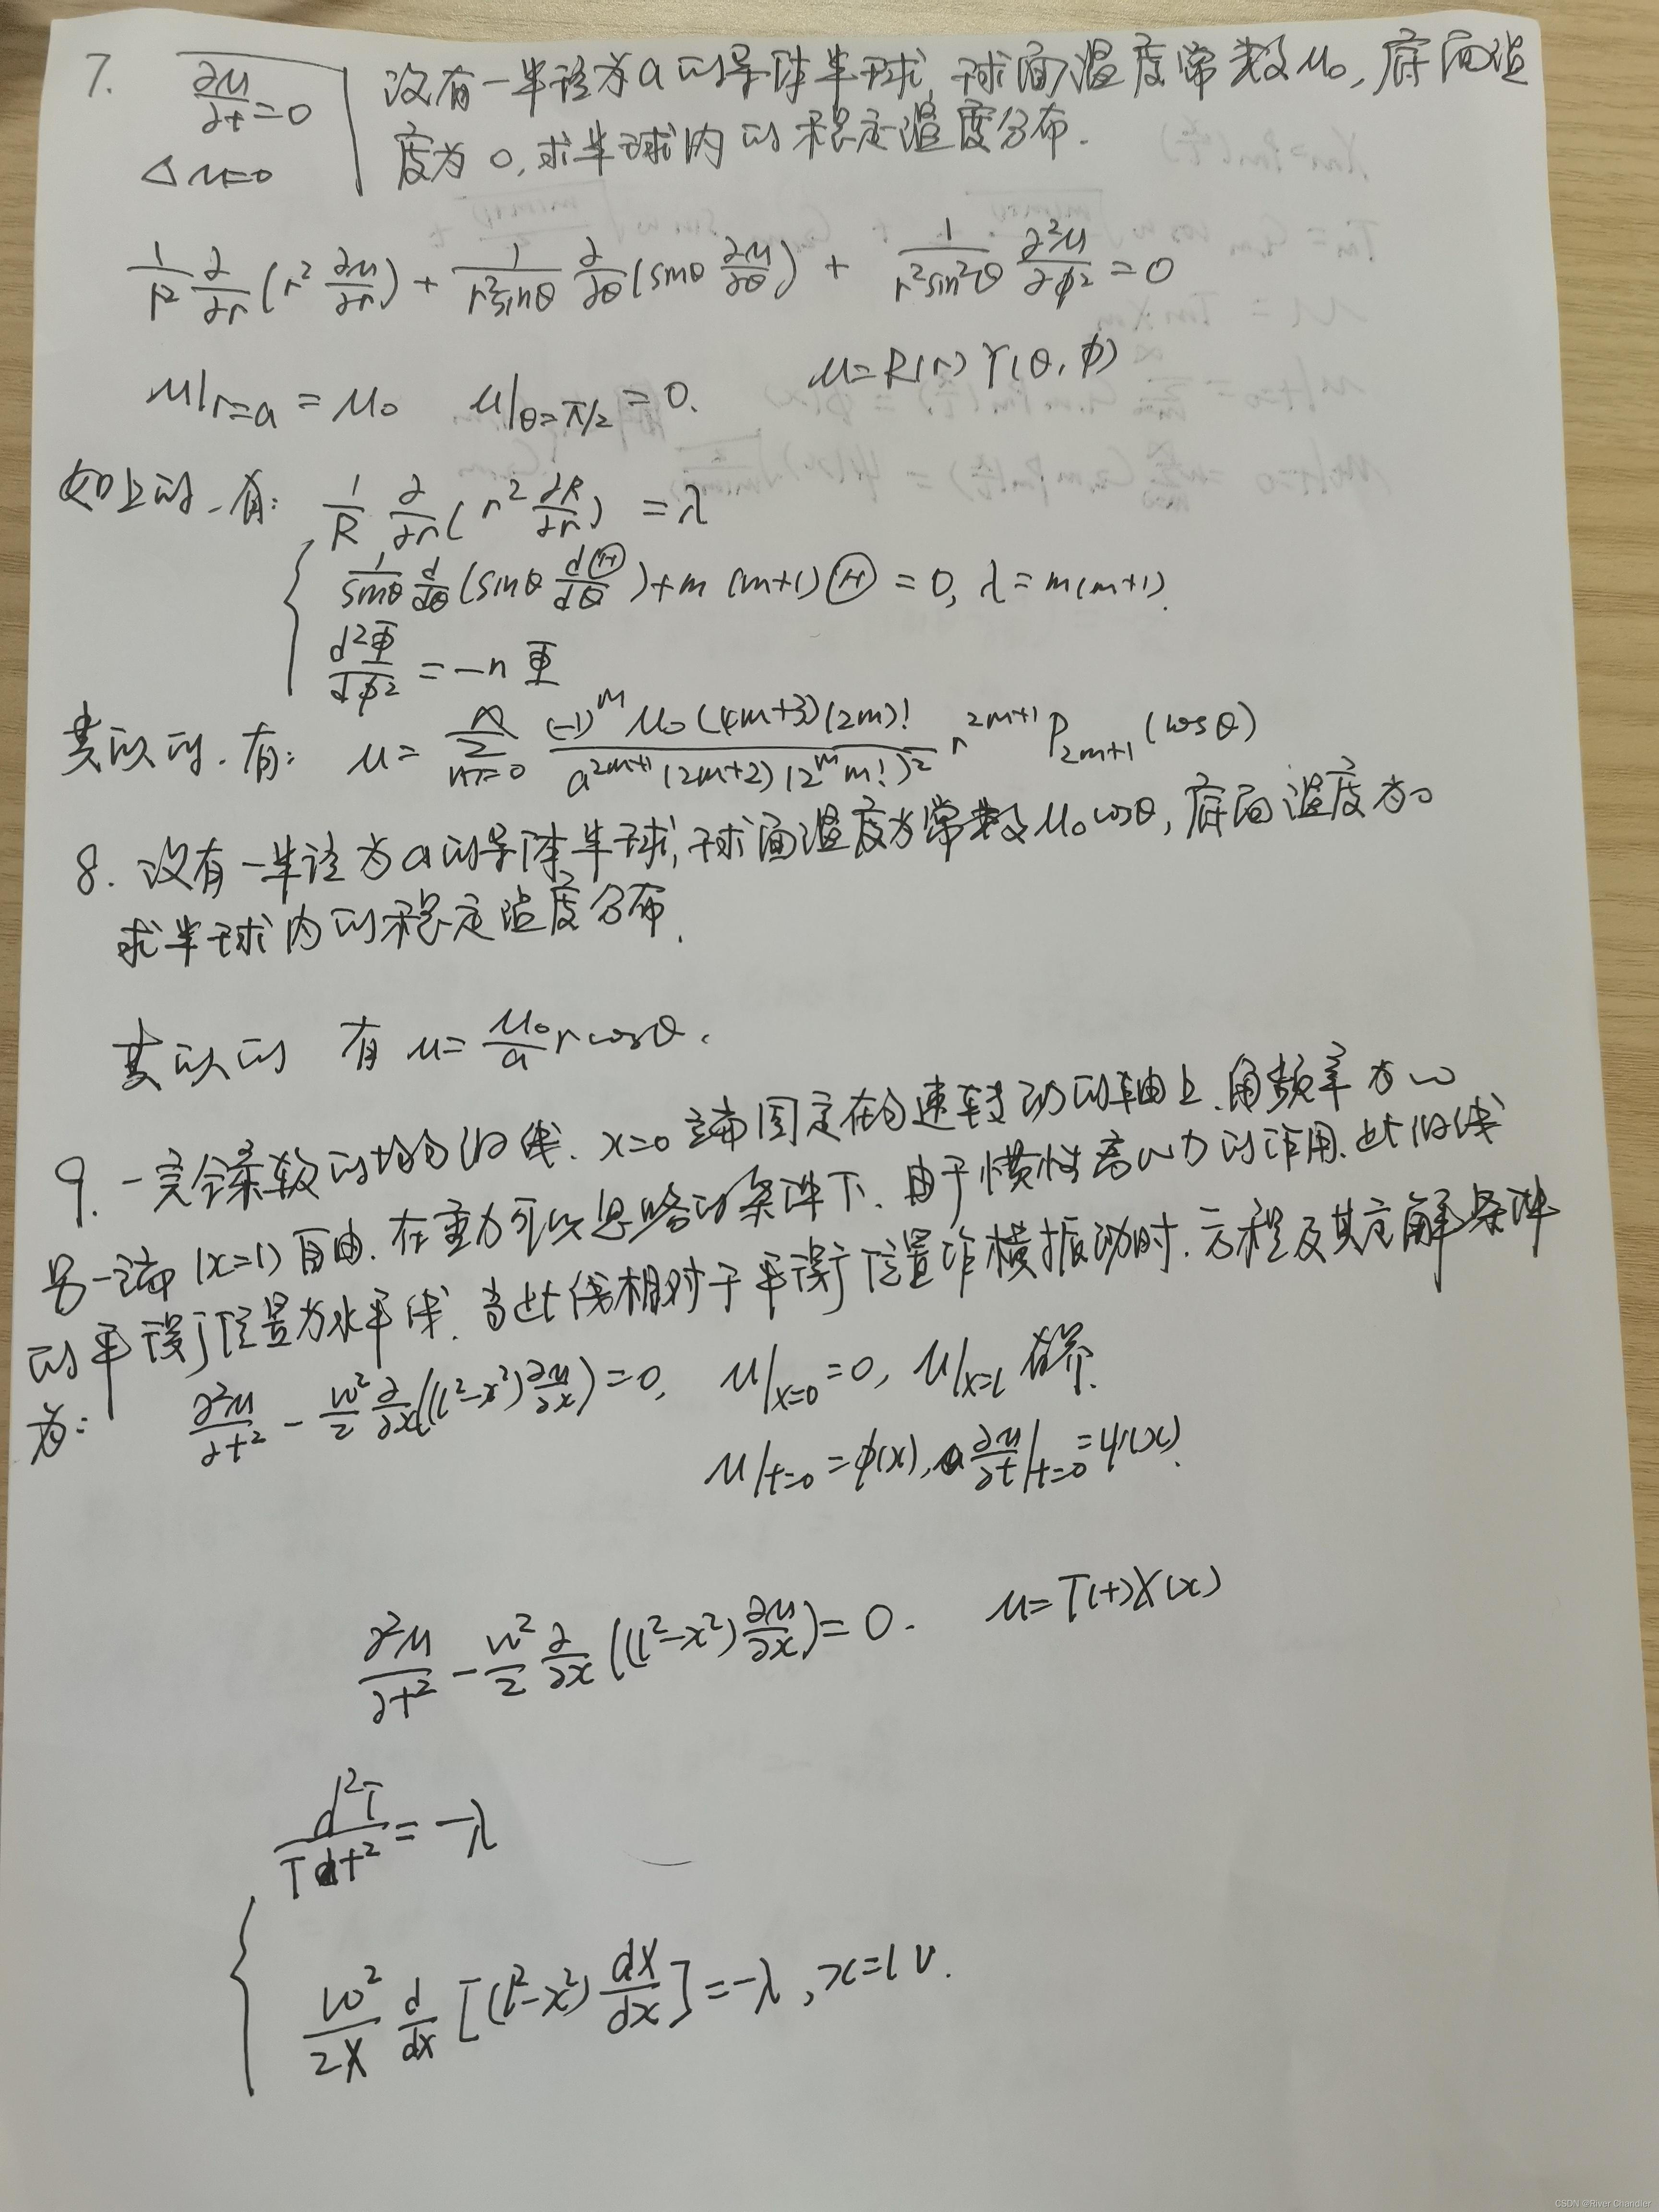 7. ∂u/∂t=0 设有一半径为a的导体半球, 球面温度常数u₀, 底面温
Δu=0 度为0, 求半球内的稳定温度分布.
1/r² ∂/∂r (r² ∂u/∂r) + 1/(r²sinθ) ∂/∂θ (sinθ ∂u/∂θ) + 1/(r²sin²θ) ∂²u/∂φ² = 0
u|r=a = u₀ u|θ=π/2 = 0. u=R(r)Y(θ,φ)
如上的, 有: 1/R ∂/∂r (r² ∂R/∂r) = λ
1/sinθ d/dθ (sinθ dΘ/dθ) + m(m+1)Θ = 0, λ=m(m+1).
d²Φ/dφ² = -nΦ
类似的, 有: u = Σ_{m=0}^{∞} (-1)^m u₀(4m+3)(2m)! / (a^{2m+1}(2m+2)(2^m m!)²) r^{2m+1} P_{2m+1}(cosθ)
8. 设有一半径为a的导体半球, 球面温度为常数u₀cosθ, 底面温度为0
求半球内的稳定温度分布.
类似的 有 u= u₀/a rcosθ.
9. 一完全柔软的均匀细线, x=0端固定在匀速转动的轴上, 角频率为ω
另一端(x=l)自由. 在重力可以忽略的条件下, 由于惯性离心力的作用, 此细线
的平衡位置为水平线, 当此线相对于平衡位置作横振动时, 方程及其定解条件
为: ∂²u/∂t² - ω²/2 ∂/∂x((l²-x²)∂u/∂x)=0, u|x=0 =0, u|x=l 有界.
u|t=0 =φ(x), ∂u/∂t|t=0 =ψ(x).
∂²u/∂t² - ω²/2 ∂/∂x ((l²-x²)∂u/∂x)=0. u=T(t)X(x)
d²T/Tdt² = -λ
ω²/2X d/dx [(l²-x²) dX/dx] = -λ, x=lv.
CSDN @River Chandler